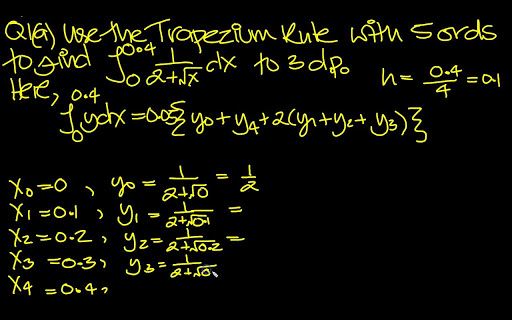 Q1(a) Use the Trapezium Rule with 5 ords
to find ∫₀^0.4 1/(2+√x) dx to 3 dp.
Here, h = 0.4/4 = 0.1
∫₀^0.4 ydx = 0.05{y0 + y4 + 2(y1 + y2 + y3)}
x0 = 0, y0 = 1/(2+√0) = 1/2
x1 = 0.1, y1 = 1/(2+√0.1) =
x2 = 0.2, y2 = 1/(2+√0.2) =
x3 = 0.3, y3 = 1/(2+√0.
x4 = 0.4,